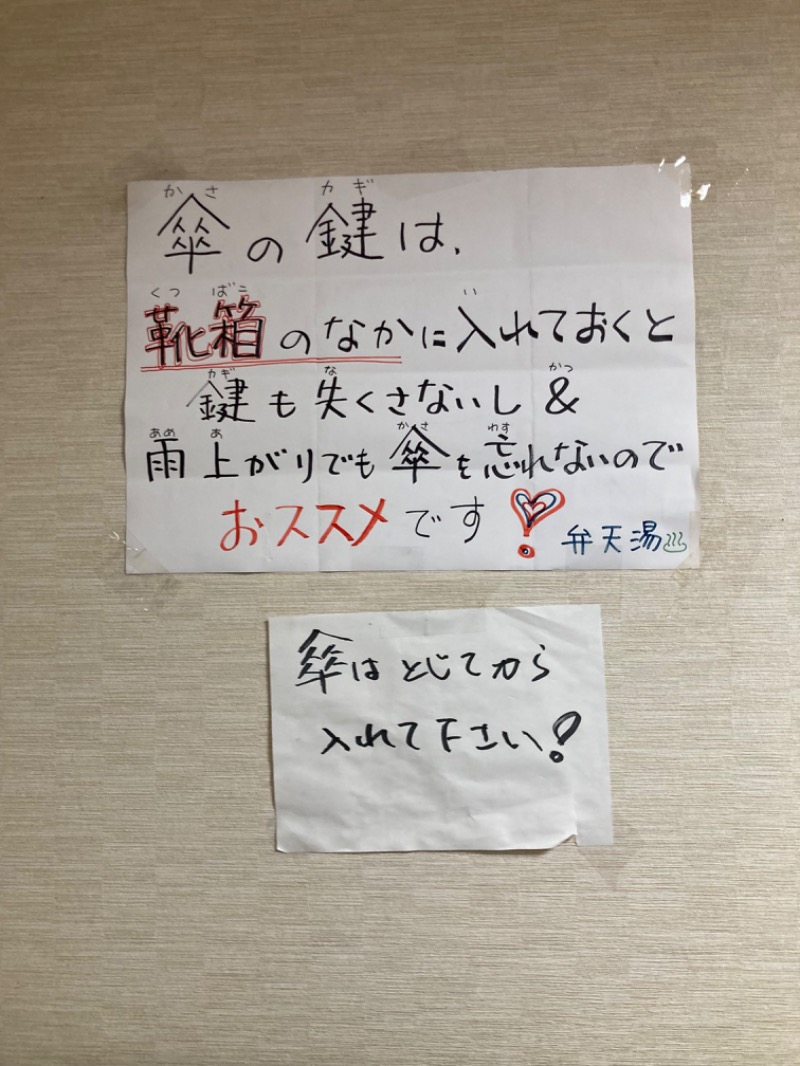 かさ カギ
傘の鍵は、
くつ ばこ い
靴箱のなかに入れておくと
カギ な かつ
鍵も失くさないし &
あめ あ かさ わす
雨上がりでも傘を忘れないので
おススメです!
弁天湯♨
傘はとじてから
入れて下さい!